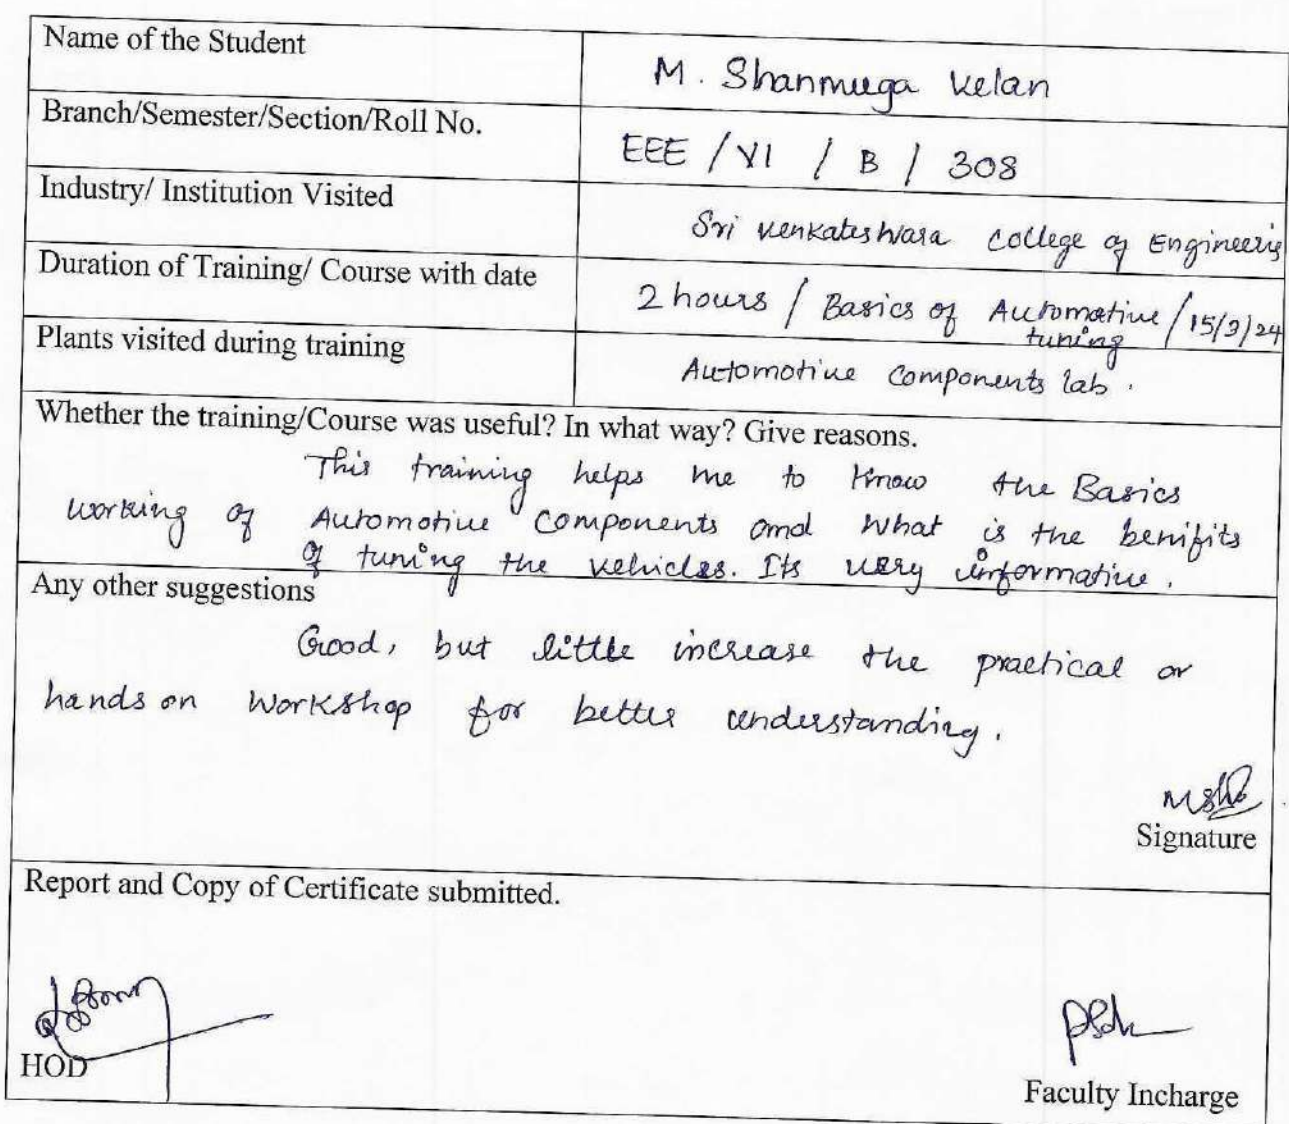 Name of the Student
M. Shanmuga Velan
Branch/Semester/Section/Roll No.
EEE / VI / B / 308
Industry/ Institution Visited
Sri Venkateshwara College of Engineerig
Duration of Training/ Course with date
2 hours / Basics of Automotive / 15/3/24
tuning
Plants visited during training
Automotive Components lab.
Whether the training/Course was useful? In what way? Give reasons.
This training helps me to know the Basics
working of Automotive Components and what is the benifits
of tuning the vehicles. Its very informative.
Any other suggestions
Good, but little increase the practical or
hands on Workshop for better understanding.
Signature
Report and Copy of Certificate submitted.
HOD
Faculty Incharge